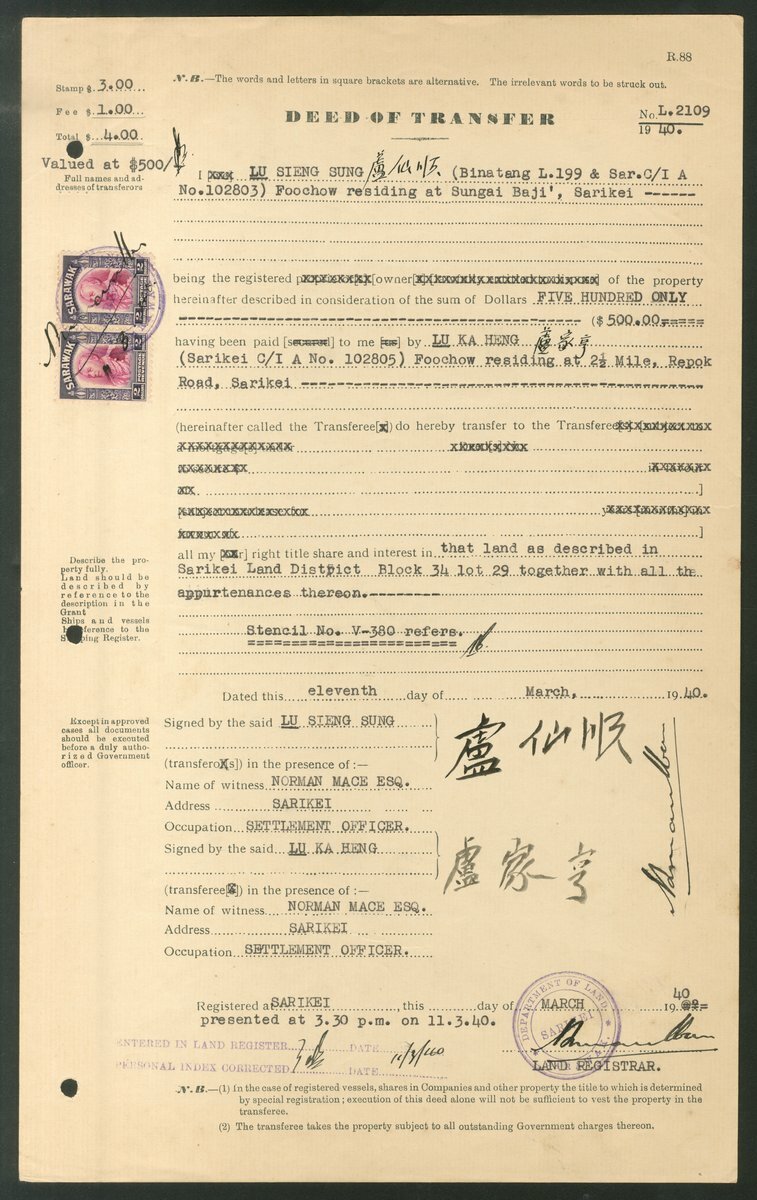 R.88
N.B.—The words and letters in square brackets are alternative. The irrelevant words to be struck out.
Stamp $ 3.00
Fee $ 1.00
Total $ 4.00
DEED OF TRANSFER
No. L.2109
1940.
Valued at $500/
Full names and ad-
dresses of transferors
I LU SIENG SUNG 盧仙順 (Binatang L.199 & Sar.C/I A
No.102803) Foochow residing at Sungai Baji', Sarikei ------
SARAWAK
SARAWAK
being the registered [owner] of the property
hereinafter described in consideration of the sum of Dollars FIVE HUNDRED ONLY
($ 500.00=====
having been paid [secured] to me [us] by LU KA HENG 盧家亨
(Sarikei C/I A No. 102805) Foochow residing at 2½ Mile, Repok
Road, Sarikei
(hereinafter called the Transferee[x]) do hereby transfer to the Transferee
]
]
all my [our] right title share and interest in that land as described in
Sarikei Land District Block 34 lot 29 together with all the
appurtenances thereon.---------
Describe the pro-
perty fully.
Land should be
described by
reference to the
description in the
Grant
Ships and vessels
by reference to the
Shipping Register.
Stencil No. V-380 refers.
Dated this eleventh day of March, 1940.
Except in approved
cases all documents
should be executed
before a duly autho-
rized Government
officer.
Signed by the said LU SIENG SUNG
盧仙順
(transferor[s]) in the presence of :—
Name of witness NORMAN MACE ESQ.
Address SARIKEI
Occupation SETTLEMENT OFFICER.
Signed by the said LU KA HENG
盧家亨
(transferee[s]) in the presence of :—
Name of witness NORMAN MACE ESQ.
Address SARIKEI
Occupation SETTLEMENT OFFICER.
Registered at SARIKEI, this day of MARCH 1940
presented at 3.30 p.m. on 11.3.40.
DEPARTMENT OF LAND
SARIKEI
ENTERED IN LAND REGISTER DATE 11/3/40
PERSONAL INDEX CORRECTED DATE
LAND REGISTRAR.
N.B.—(1) In the case of registered vessels, shares in Companies and other property the title to which is determined
by special registration ; execution of this deed alone will not be sufficient to vest the property in the
transferee.
(2) The transferee takes the property subject to all outstanding Government charges thereon.